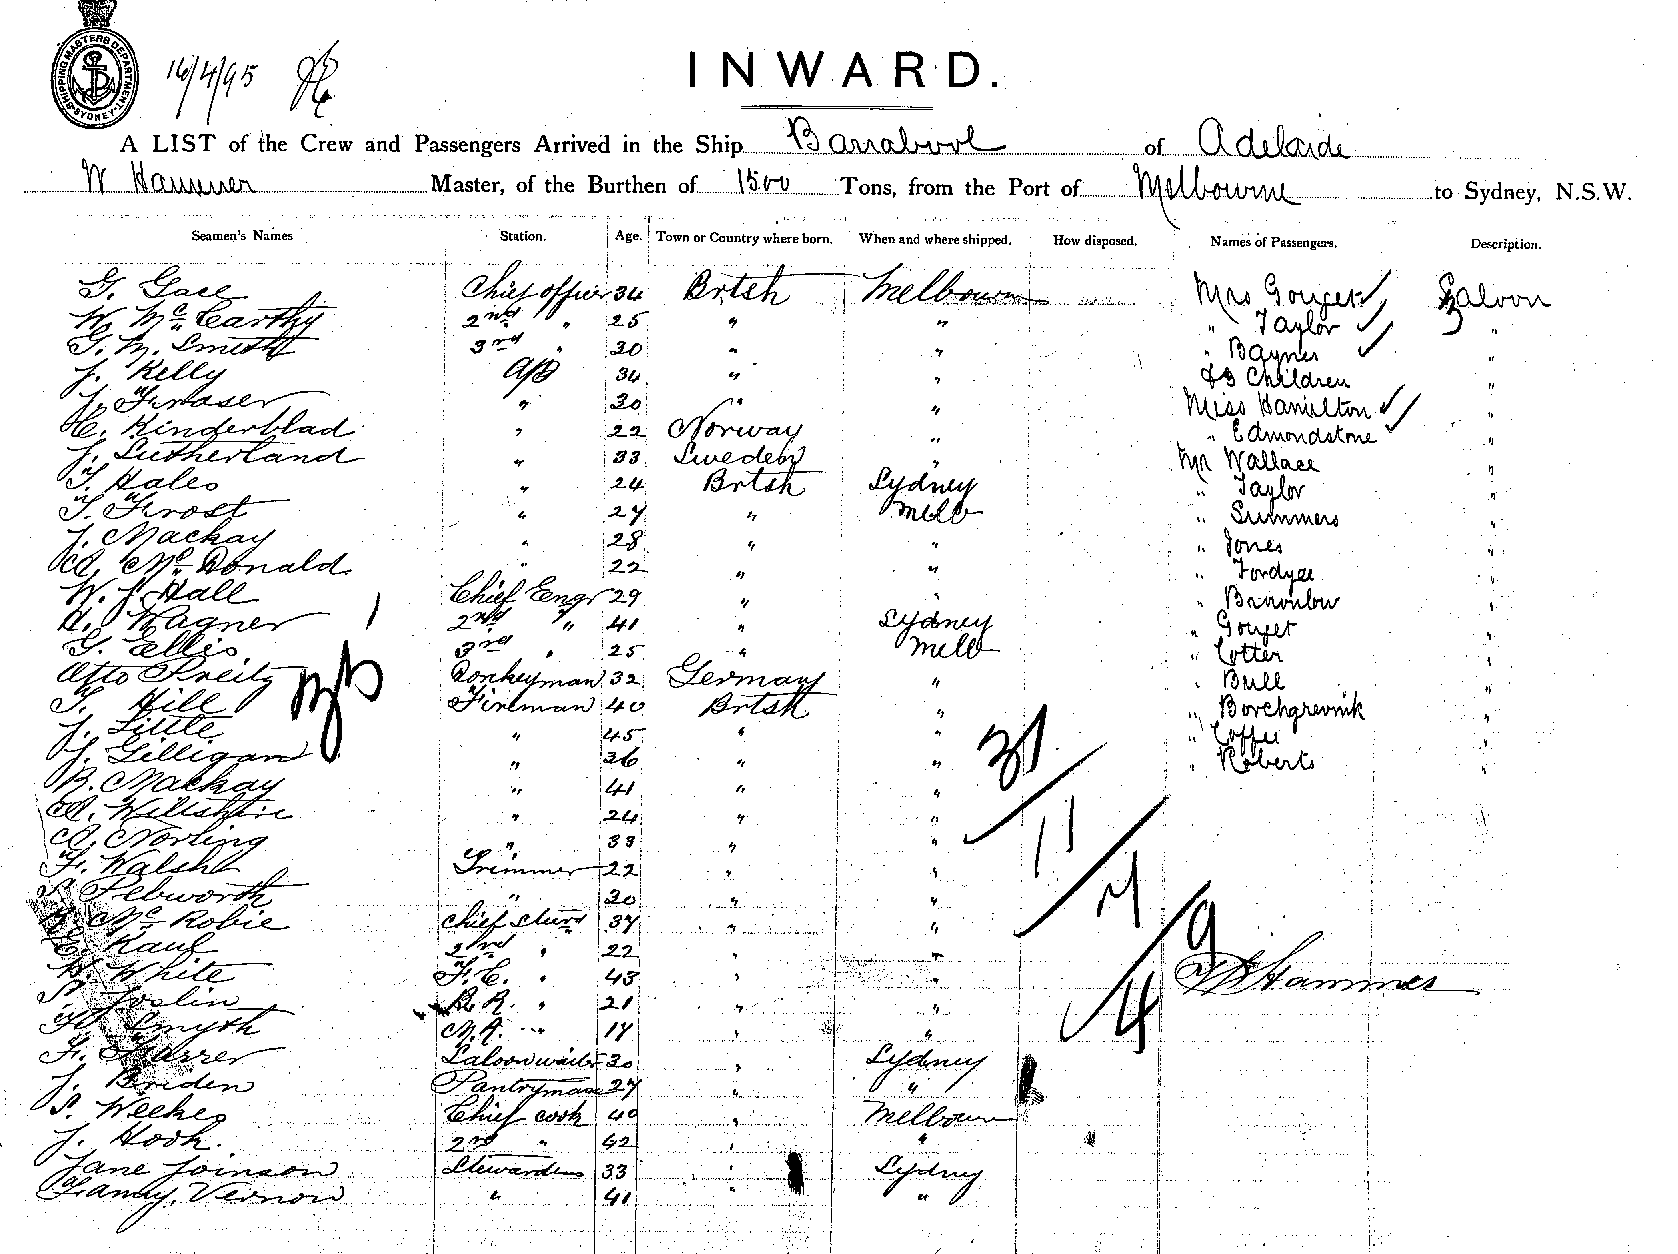 SHIPPING MASTERS DEPARTMENT SYDNEY
16/4/95
INWARD.
A LIST of the Crew and Passengers Arrived in the Ship Barrabool of Adelaide
W Hammer Master, of the Burthen of 1500 Tons, from the Port of Melbourne to Sydney, N.S.W.
Seamen's Names Station. Age. Town or Country where born. When and where shipped. How disposed. Names of Passengers. Description.
G. Chief officer 34 Brtsh Melbourn Mrs Gouget Saloon
W. McCarthy 2nd " 25 " " " Taylor "
G. M. Smith 3rd " 30 " " " Bayner "
J. Kelly A/B 34 " " & 3 Children "
J. Fraser " 30 " " Miss Hamilton "
C. Kinderblad " 22 Norway " " Edmondstone "
J. Sutherland " 33 Sweden " Mr Wallace "
T. Hales " 24 Brtsh Sydney " Taylor "
T. Frost " 27 " Melb " Summers "
J. Mackay " 28 " " " Jones "
A. McDonald " 22 " " " Fordyce "
W. J. Hall Chief Engr 29 " " "
H. Wagner 2nd " 41 " Sydney " Gouget "
G. Ellis 3rd " 25 " Melb " Cotter "
Otto Donkeyman 32 Germany " " Bull "
T. Hill Fireman 40 Brtsh " " Borchgrevink "
J. Little " 45 " " " "
J. Gilligan " 36 " " " Roberts "
R. Mackay " 41 " "
A. Wiltshire " 24 " "
A. Norling " 33 " "
F. Walsh Trimmer 22 " "
Pebworth " 20 " "
McRobie Chief Stwd 37 " "
Kaul 2nd " 22 " "
W. White F.C. " 43 " "
Joslin B.R. " 21 " "
Smyth M.R. " 17 " "
F. Saloon waiter 30 " Sydney
J. Briden Pantryman 27 " "
Weekes Chief cook 40 " Melbourn
J. Hook. 2nd " 42 " "
Jane Joinson Stewardess 33 " Sydney
Fanny Vernon " 41 " "
31
11
7
9
4
W Hammer